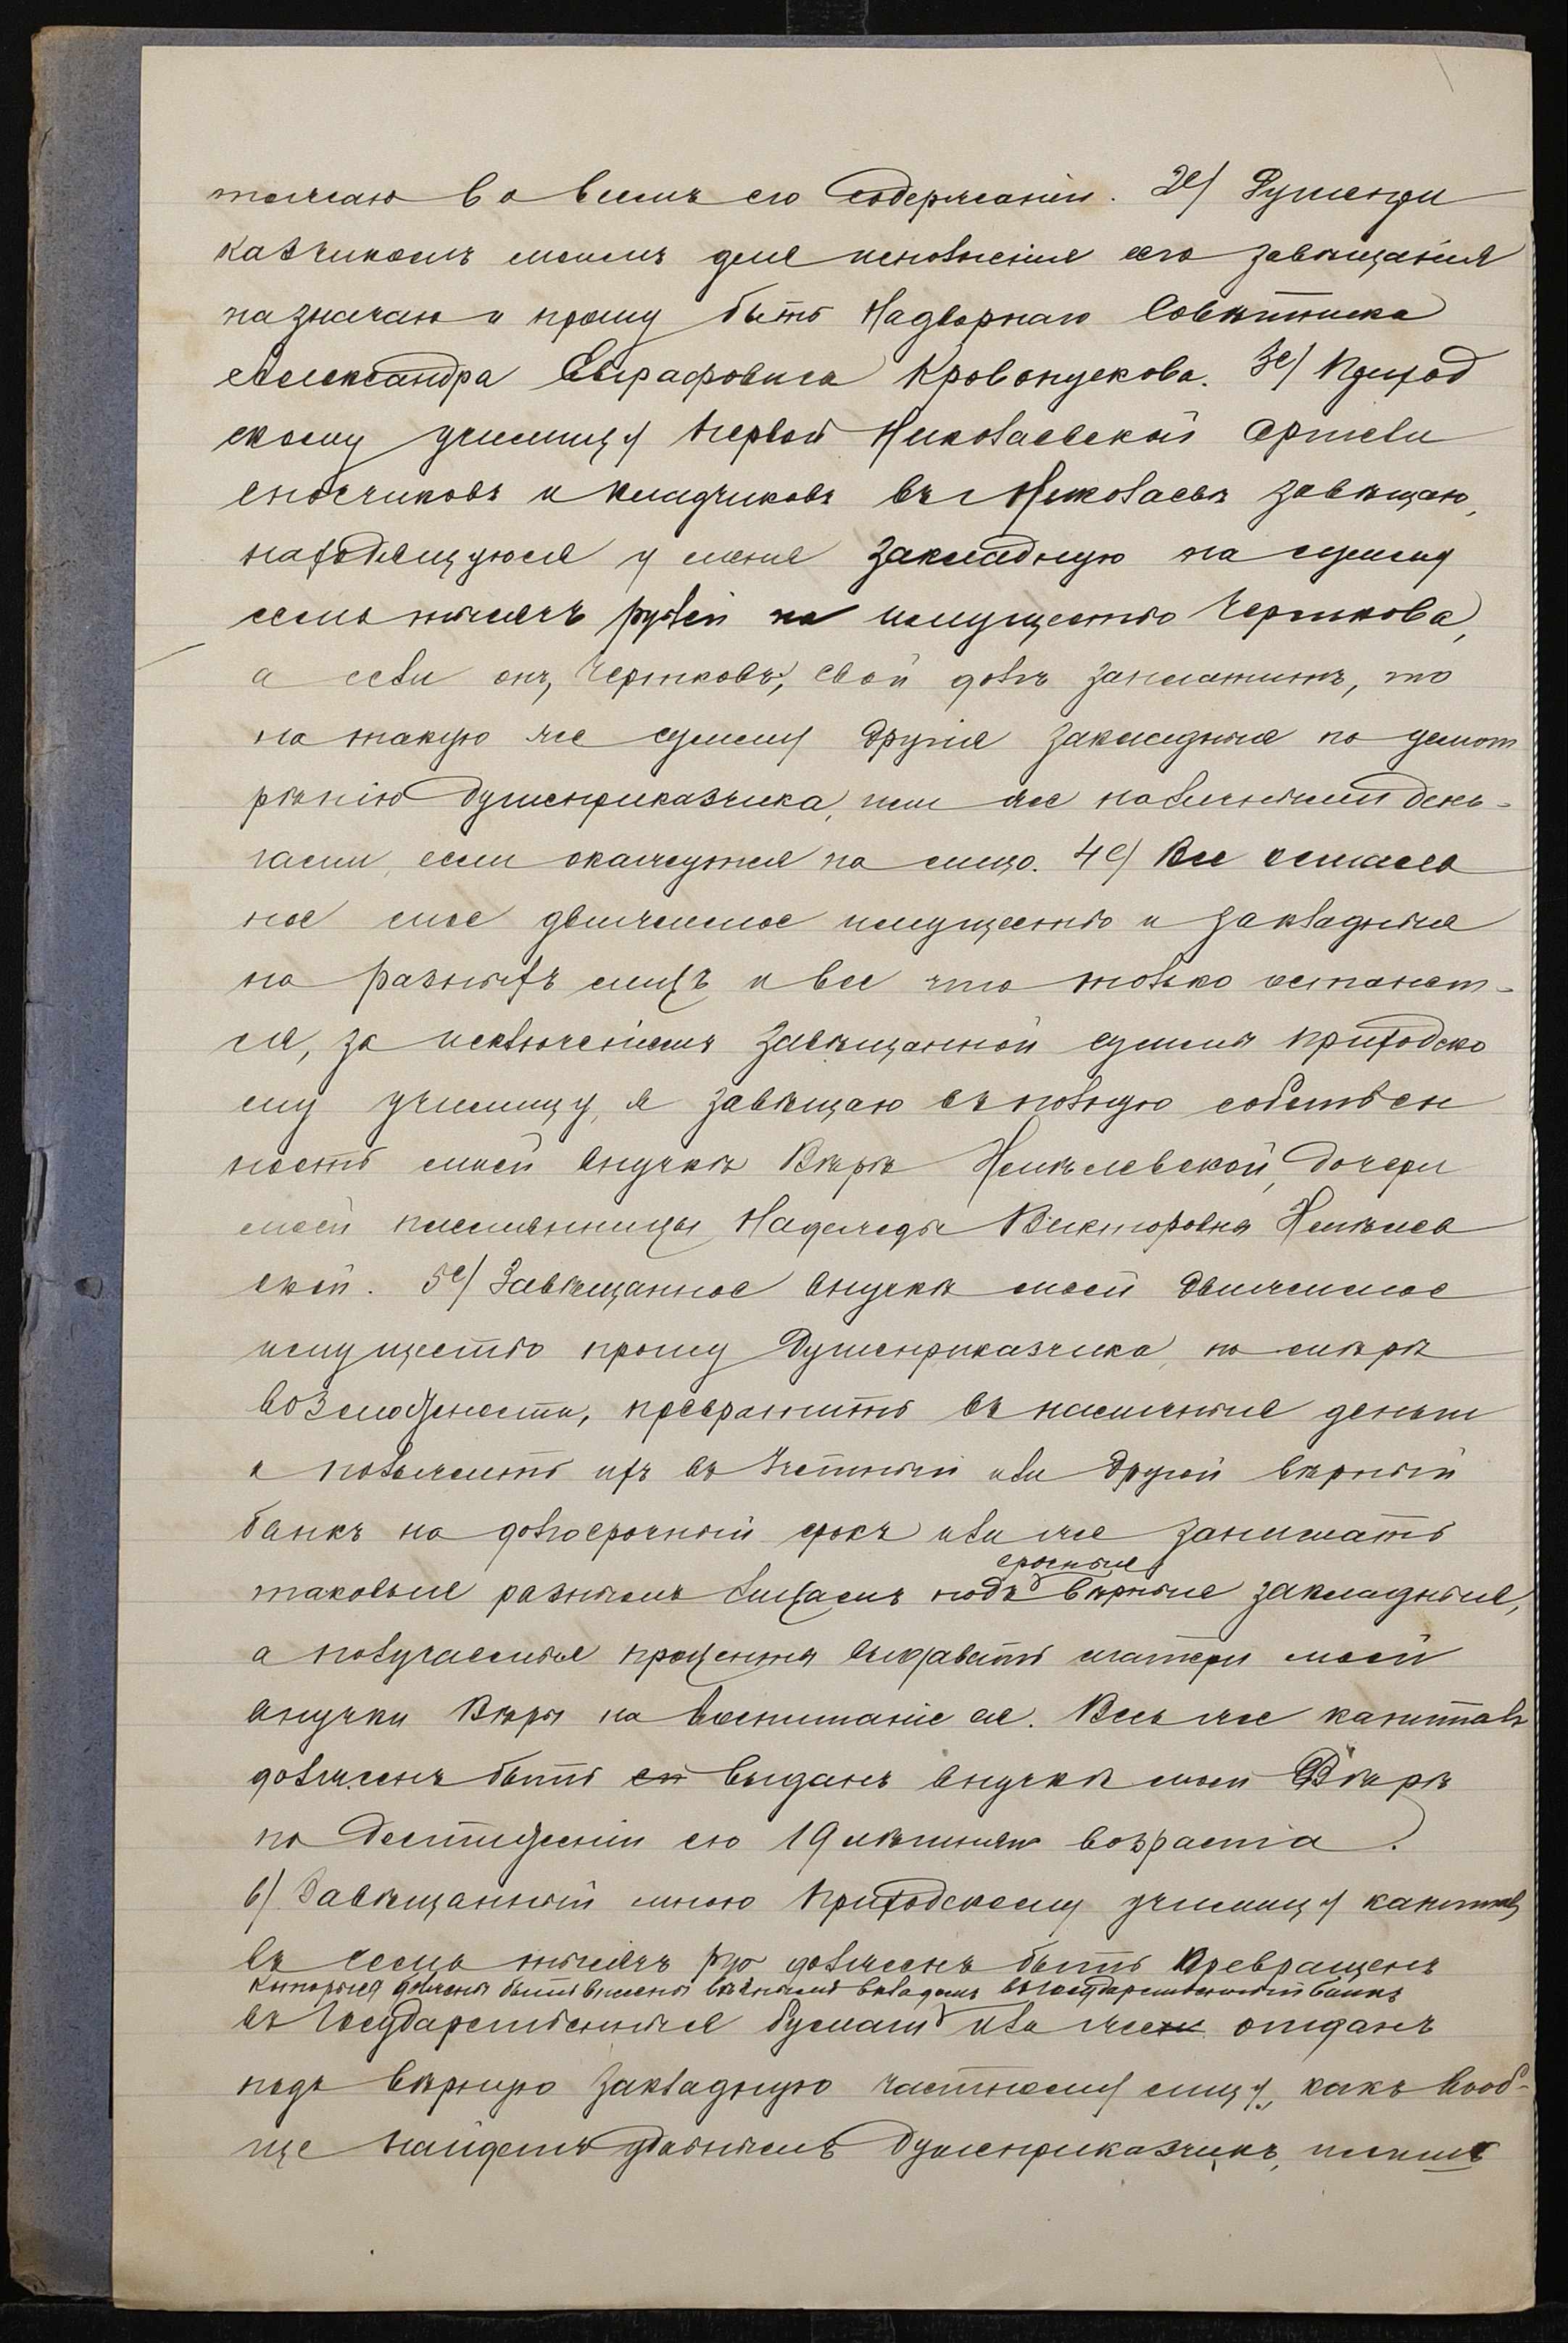 тожаю во всемъ его содержаніи. 2е/ Душепри
казчикомъ моимъ для исполненія сего завѣщанія
назначаю и прошу быть Надворнаго Совѣтника
Александра Евграфовича Кровопускова. 3е/ Приход
скому училищу первой Николаевской Артели
сносчиковъ и кладчиковъ въ г Николаевѣ завѣщаю,
находящуюся у меня закладную на сумму
семь тысячъ рублей на имущество Черткова,
а если онъ, Чертковъ, свой долгъ заплатитъ, то
на такую же сумму другія закладныя по усмот
рѣнію душеприказчика, или же наличными день-
гами, если окажутся на лицо. 4е/ Все остальа
ное мое движимое имущество и закладныя
на разныхъ лицъ и все что только останет-
ся, за исключеніемъ завѣщанной суммы приходско
му училищу, я завѣщаю въ полную собствен
ность моей внучкѣ Вѣрѣ Нентлевской, дочери
моей племянницы Надежды Викторовны Нентлев
ской. 5е/ Завѣщанное внучкѣ моей движимое
имущество прошу душеприказчика, по мѣрѣ
возможности, превратить въ наличныя деньги
и положить ихъ въ Частный или другой вѣрный
банкъ на долгосрочный срокъ или же занимать
срочныя
таковыя разнымъ лицамъ подъ вѣрныя закладныя,
а получаемые проценты выдавать матери моей
внучки Вѣры на воспитаніе ея. Весь же капиталъ
долженъ быть ей выданъ внучкѣ моей Вѣрѣ
по достиженіи ею 19 лѣтняго возраста.
6/ Завѣщанный мною приходскому училищу капиталъ
въ семь тысячъ ру долженъ быть превращенъ
которыя должны быть внесены вѣчнымъ вкладомъ въ государственный банкъ
въ Государственныя бумаги или же отданъ
подъ вѣрную закладную частному лицу, какъ вооб-
ще найдетъ удобнымъ душеприказчикъ,